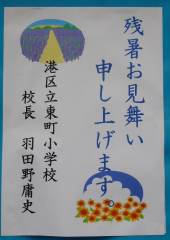 残暑お見舞い
申し上げます。
港区立東町小学校
校長　羽田野庸史